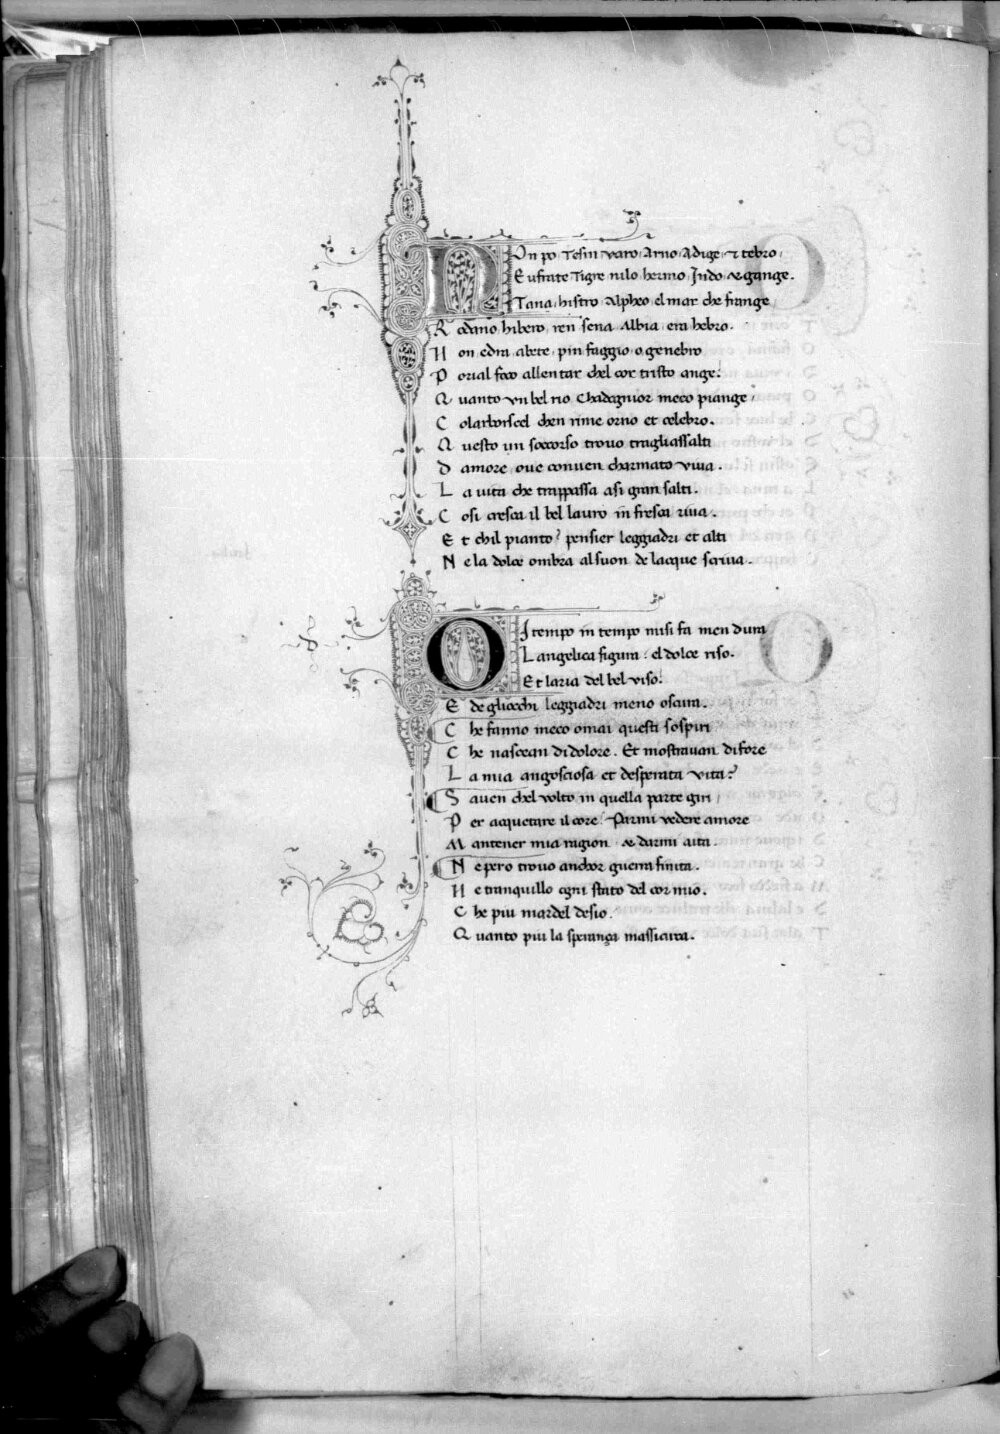 Non po, Tesin, varo, Arno, Adige, et tebro,
Eufrate Tigre nilo hermo, Jndo, et gange.
Tana, histro, Alpheo, el mar che frange,
Rodano, hibero, ren sena Albia, era hebro.
Non edra abete, pin faggio o genebro
Poria l foco allentar chel cor tristo ange.
Quanto vn bel rio chadognior meco piange,
Co larborscel chen rime orno et celebro.
Questo un soccorso trovo tragliassalti
Damore, ove conven charmato viva.
La vita che trappassa asi gran salti.
Cosi cresca il bel lauro in fresca riva.
Et chil pianto, pensier leggiadri et alti
Nela dolce ombra alsuon de lacque scriva.
Di tempo in tempo misi fa men dura
Langelica figura: el dolce riso.
Et laria del bel viso.
E de gliocchi leggiadri meno oscura.
Che fanno meco omai questi sospiri
Che nascean di dolore. Et mostravan di fore
La mia angosciosa et desperata vita?
Saven chel volto in quella parte giri,
Per acquetare il core. Parmi vedere amore
Mantener mia ragion et darmi aita.
Ne pero trovo anchor guerra finita.
Ne tranquillo ogni stato del cor mio.
Che piu mardel desio.
Quanto piu la speranza massicura.